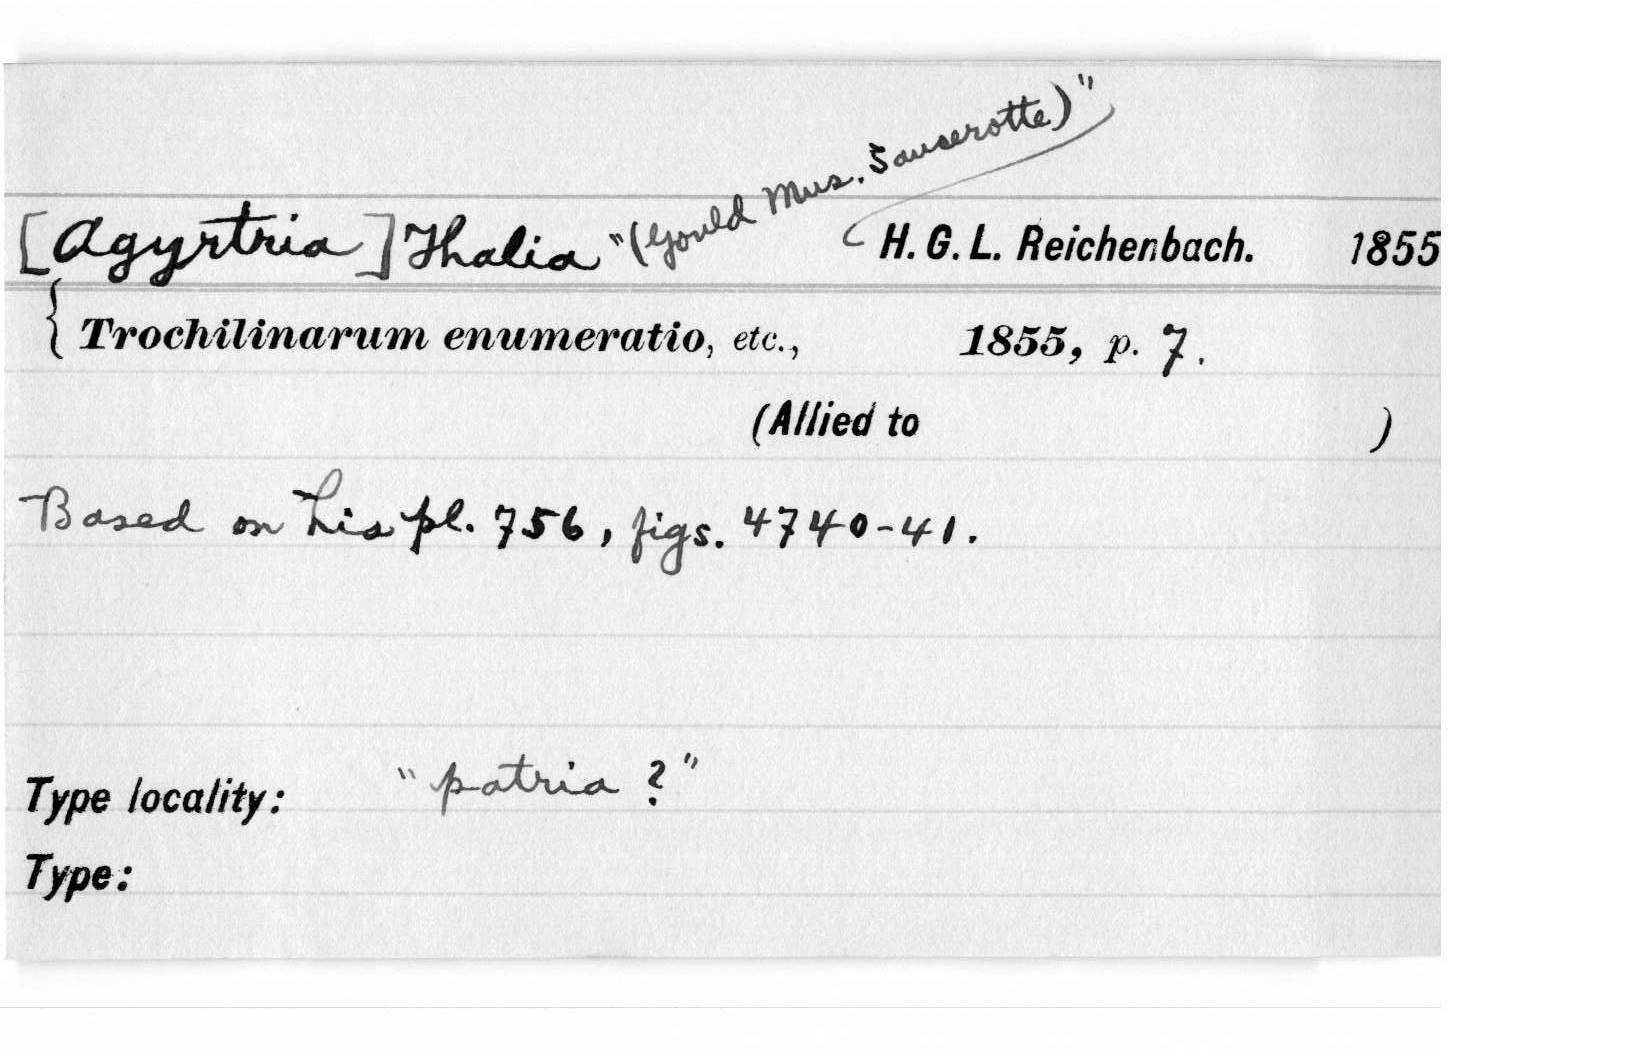 [Agyrtria] Thalia "(Gould Mus. Sauserotte)" H. G. L. Reichenbach. 1855
{ Trochilinarum enumeratio, etc., 1855, p. 7.
(Allied to )
Based on his pl. 756, figs. 4740-41.
Type locality: "patria ?"
Type: